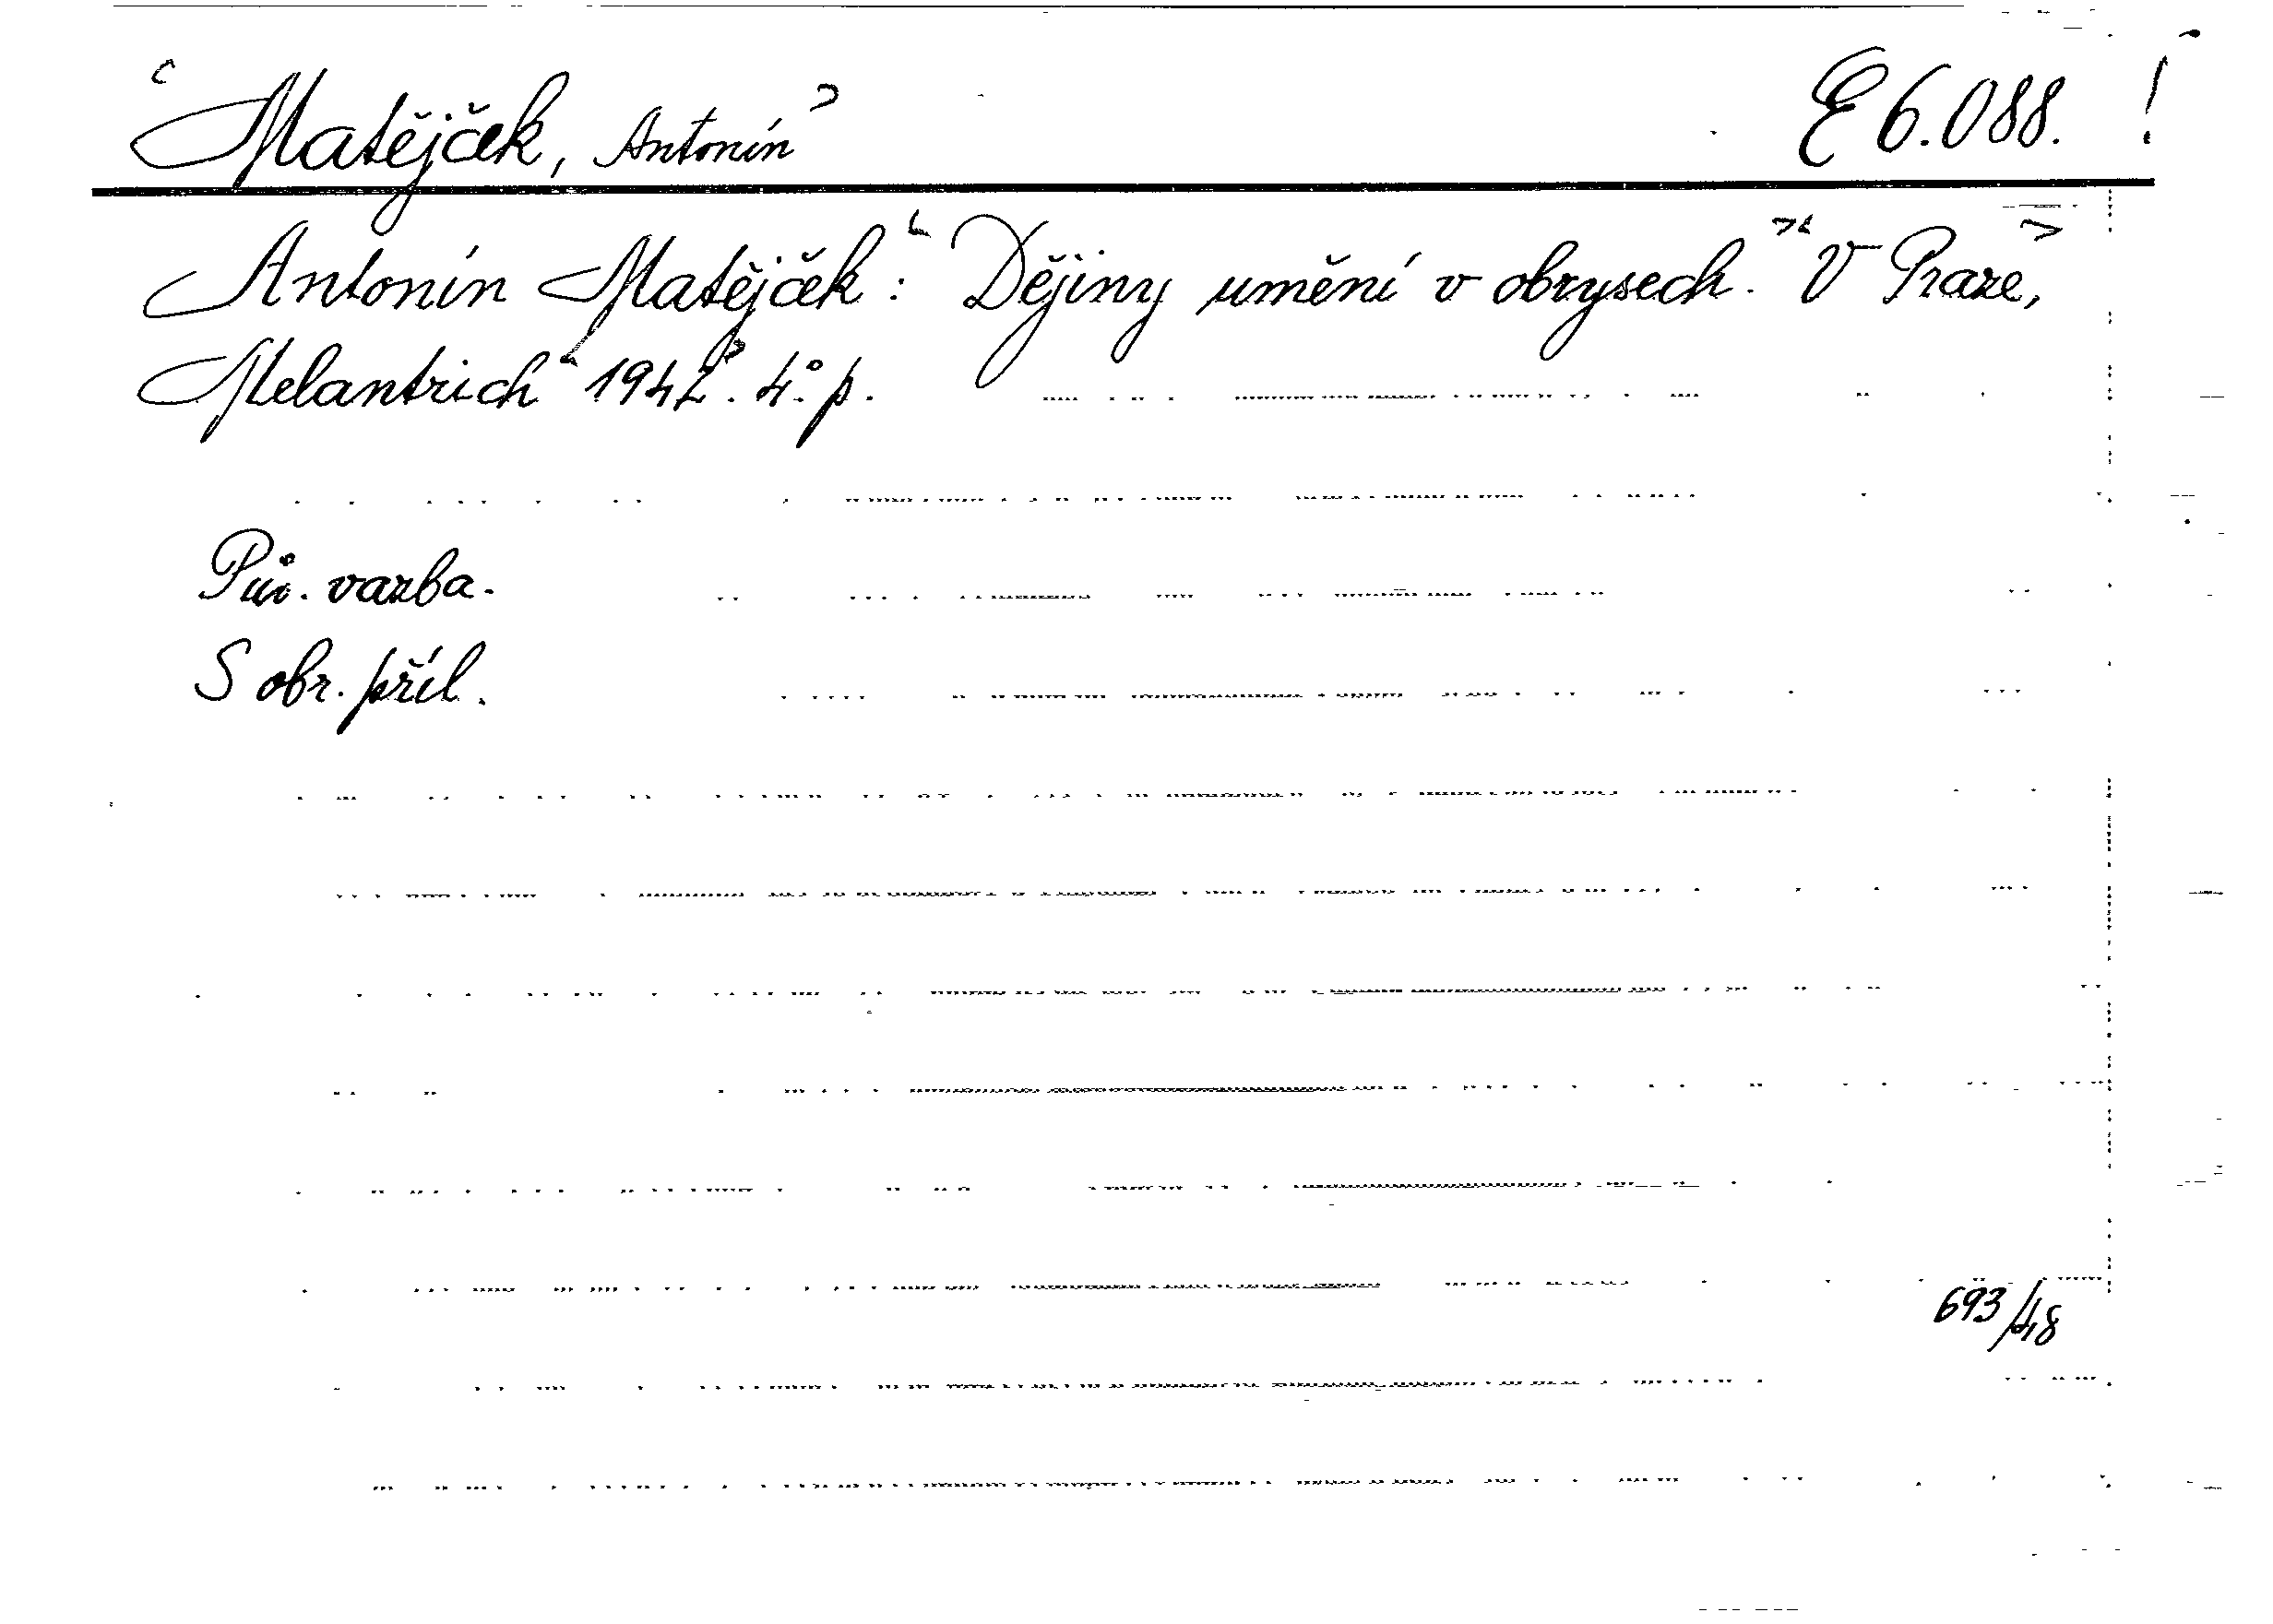 Matějček, Antonín E 6.088. !
Antonín Matějček: Dějiny umění v obrysech. V Praze,
Melantrich 1942. 4.° p.
Pův. vazba.
S obr. příl.
693/48